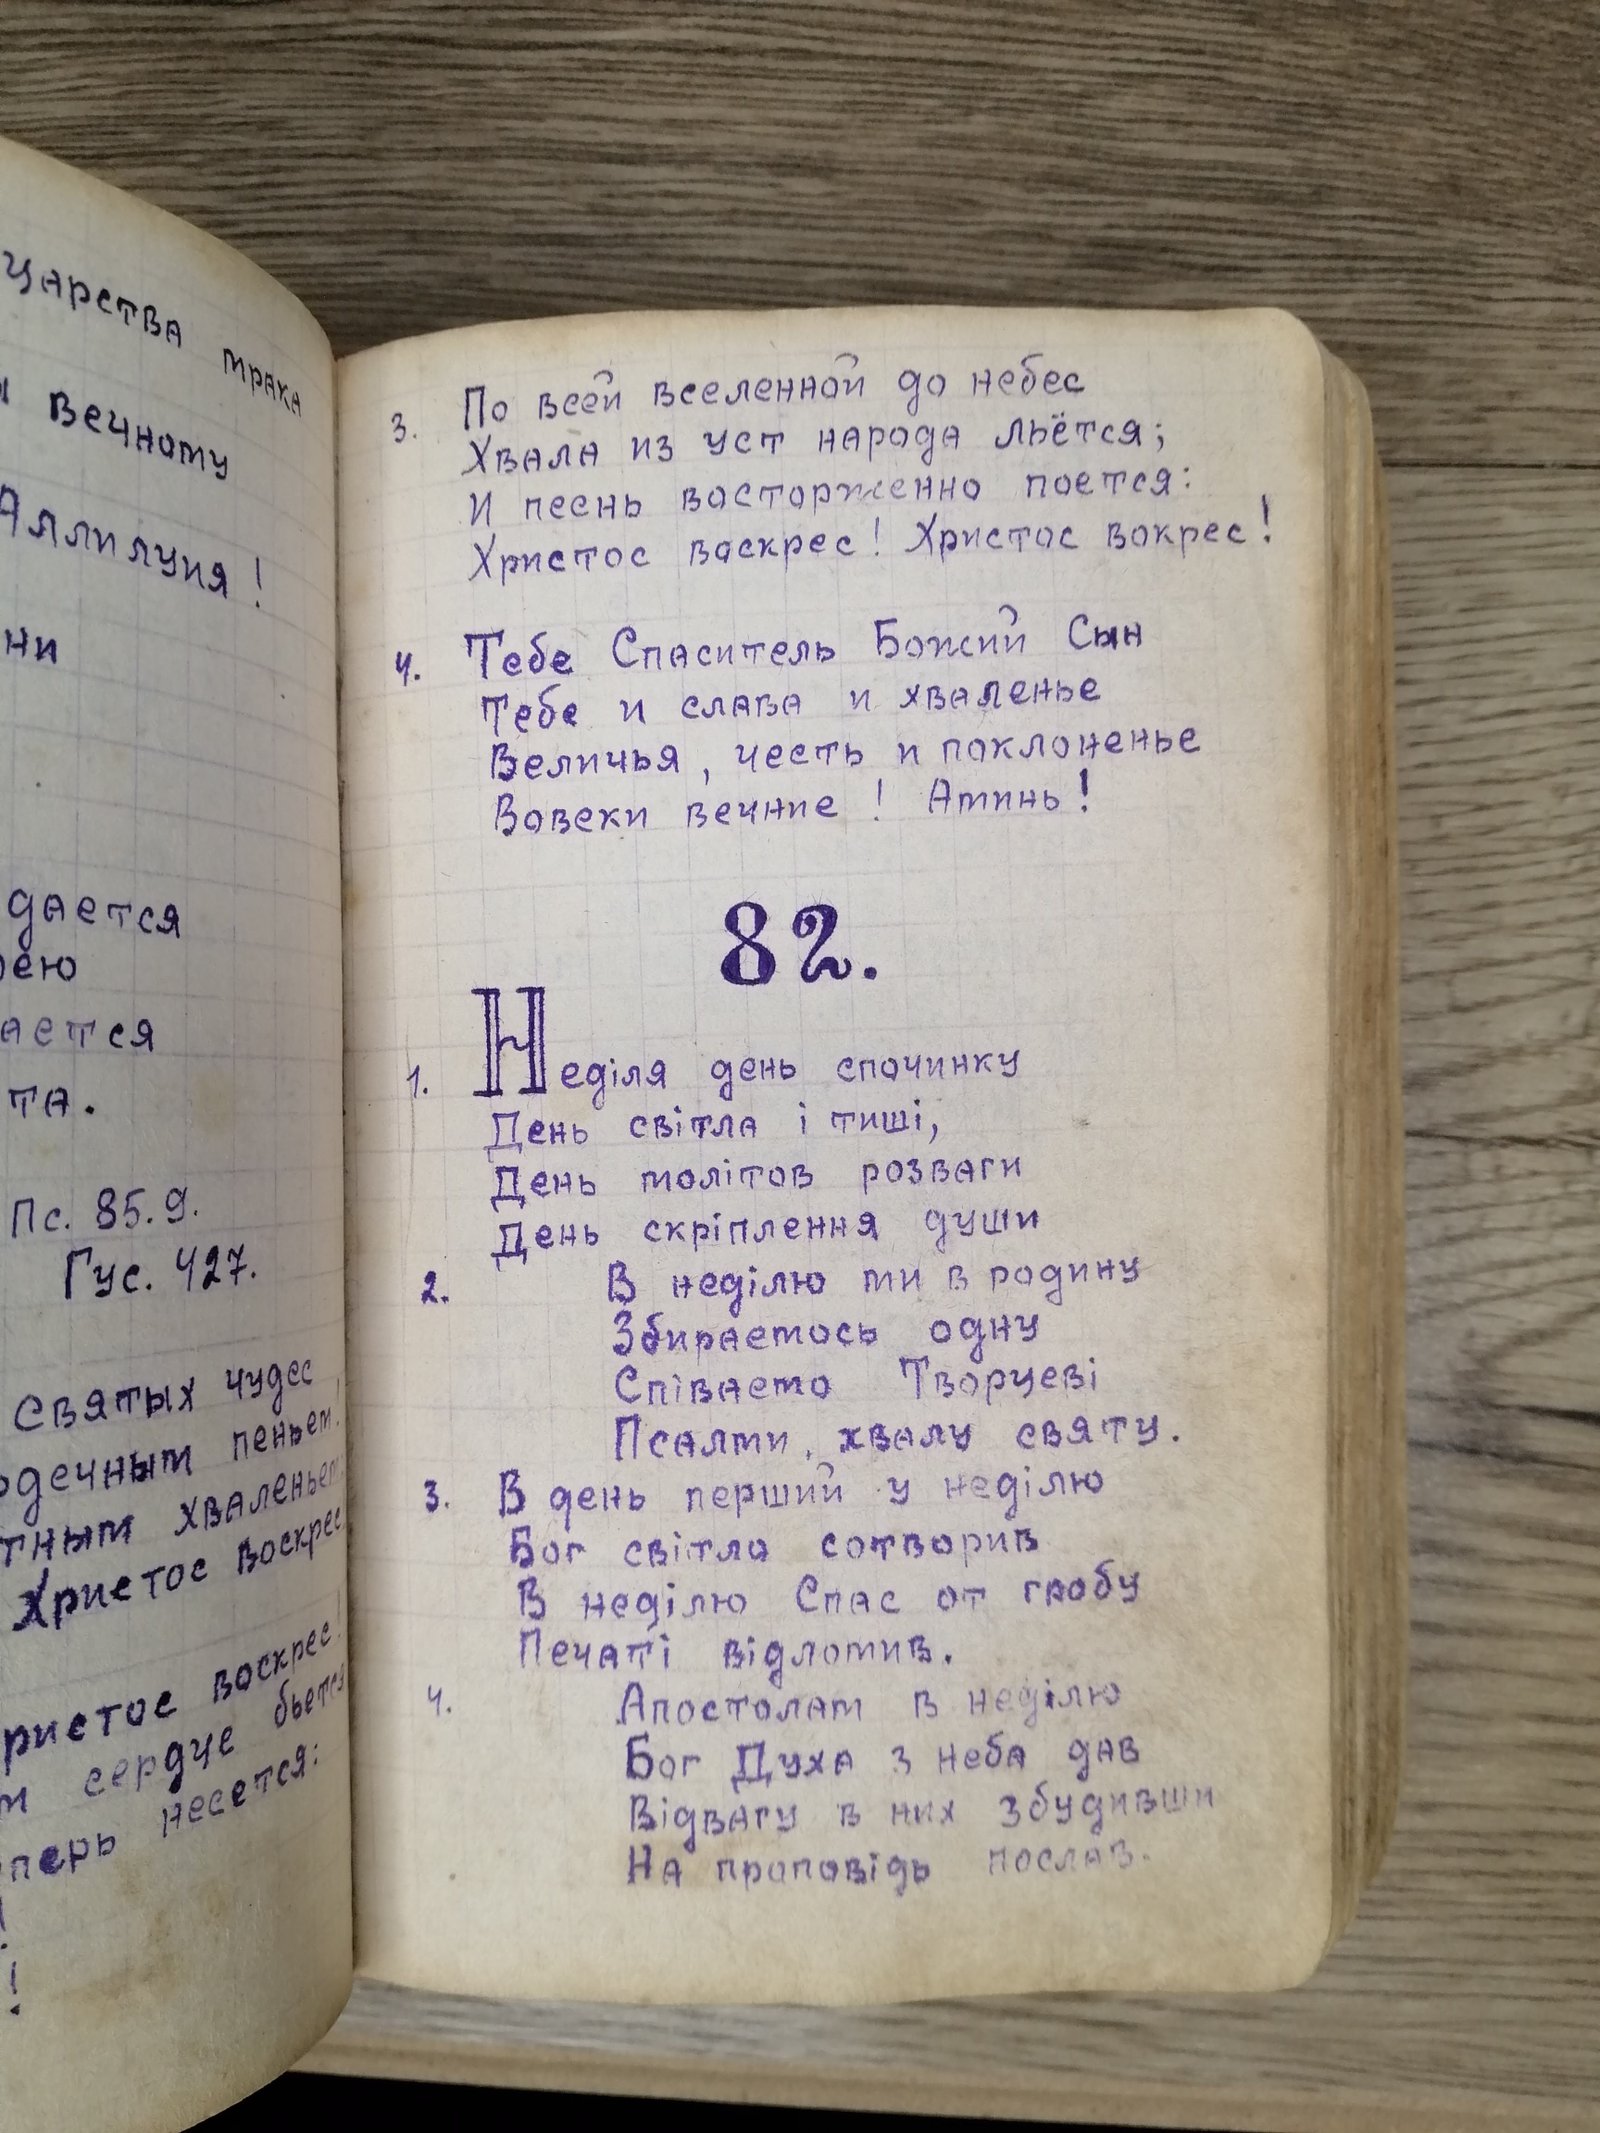 царства мрака
вечному
Аллилуия!
ни
дается
рею
ается
та.
Пс. 85.9.
Гус. 427.
Святых чудес
одечным пеньем.
тным хваленьем
Христос воскрес
ристос воскрес!
м сердце бьется
перь несется:
!
!
3. По всей вселенной до небес
Хвала из уст народа льётся;
И песнь восторженно поется:
Христос воскрес! Христос вокрес!
4. Тебе Спаситель Божий Сын
Тебе и слава и хваленье
Величья, честь и поклоненье
Вовеки вечние! Аминь!
82.
1. Неділя день спочинку
День світла і тиші,
День молітов розваги
День скріплення души
2. В неділю ми в родину
Збираемось одну
Співаемо Творцеві
Псалми, хвалу святу.
3. В день перший у неділю
Бог світло сотворив
В неділю Спас от гробу
Печаті відломив.
4. Апостолам в неділю
Бог Духа з неба дав
Відвагу в них збудивши
На проповідь послав.